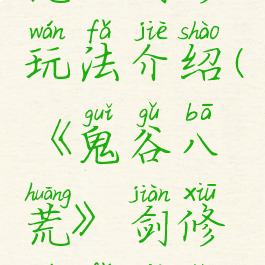 wán fǎ jiè shào
玩法介绍(
guǐ gǔ bā
《鬼谷八
huāng jiàn xiū
荒》剑修